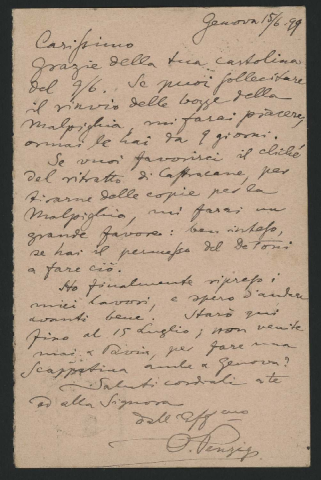 Genova 15/6.99
Carissimo
Grazie della tua cartolina
del 9/6. Se puoi sollecitare
il rinvio delle bozze della
Malpighia, mi farai piacere,
ormai le hai da 9 giorni.
Se vuoi favorirci il cliché
del ritratto di Castracane, per
tirarne delle copie per la
Malpighia, mi farai un
grande favore: ben inteso,
se hai il permesso del De Toni
a fare ciò.
Ho finalmente ripreso i
miei lavori, e spero d'andare
avanti bene. Starò qui
fino al 15 Luglio; non venite
mai a Pavia, per fare una
scappatina anche a Genova?
Saluti cordiali a te
ed alla Signora
dall' Aff.mo
O. Penzig